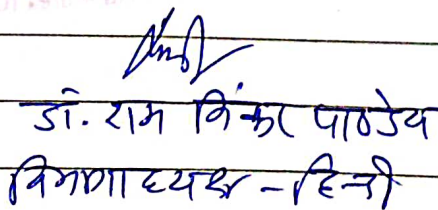 डॉ. राम किंकर पाण्डेय
विभागाध्यक्ष - हिन्दी